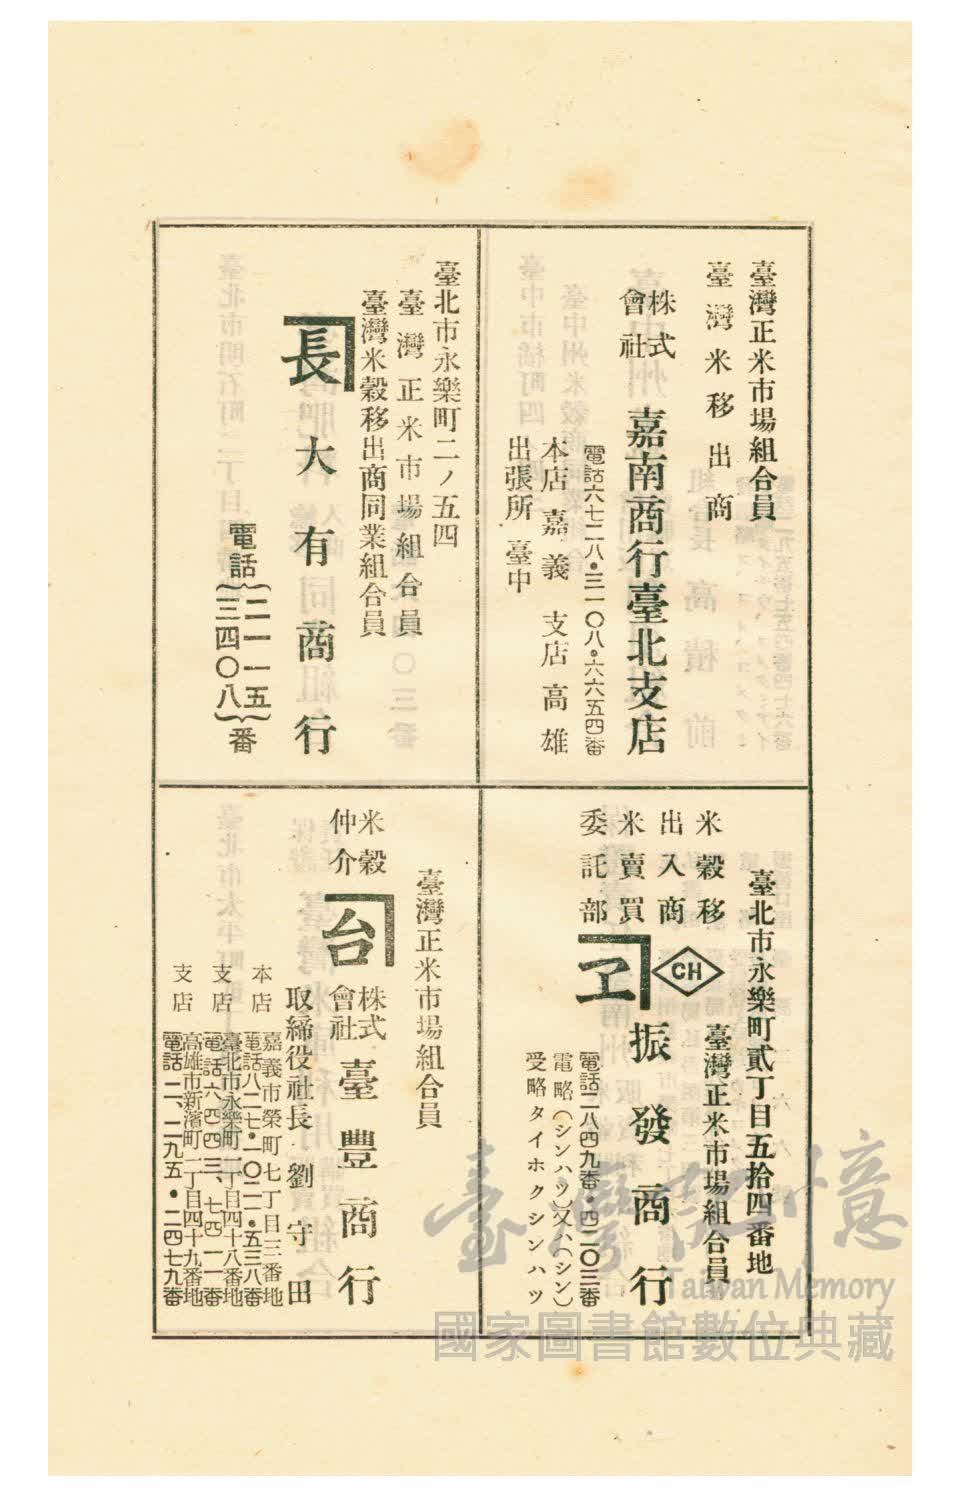 臺灣正米市場組合員
臺灣米移出商
株式
會社
嘉南商行臺北支店
電話六七二八・三一〇八・六六五四番
本店 嘉義 支店 高雄
出張所 臺中
臺北市永樂町二ノ五四
臺灣正米市場組合員
臺灣米穀移出商同業組合員
長
大有商行
電話
二一一五
三四〇八
番
臺北市永樂町貳丁目五拾四番地
臺灣正米市場組合員
米穀移
出入商
米賣買
委託部
CH
ヱ
振發商行
電話二八四九番・四二〇三番
電略(シンハツ)又ハ(シン)
受略タイホクシンハツ
臺灣正米市場組合員
米穀
仲介
台
株式
會社
臺豐商行
取締役社長 劉守田
本店 嘉義市榮町七丁目三番地
電話八二七・一〇二一・五三八番
支店 臺北市永樂町一丁目四十八番地
電話六四四三、七四一一番
支店 高雄市新濱町一丁目四十九番地
電話二、二九五・二四七九番
臺灣記憶
Taiwan Memory
國家圖書館數位典藏